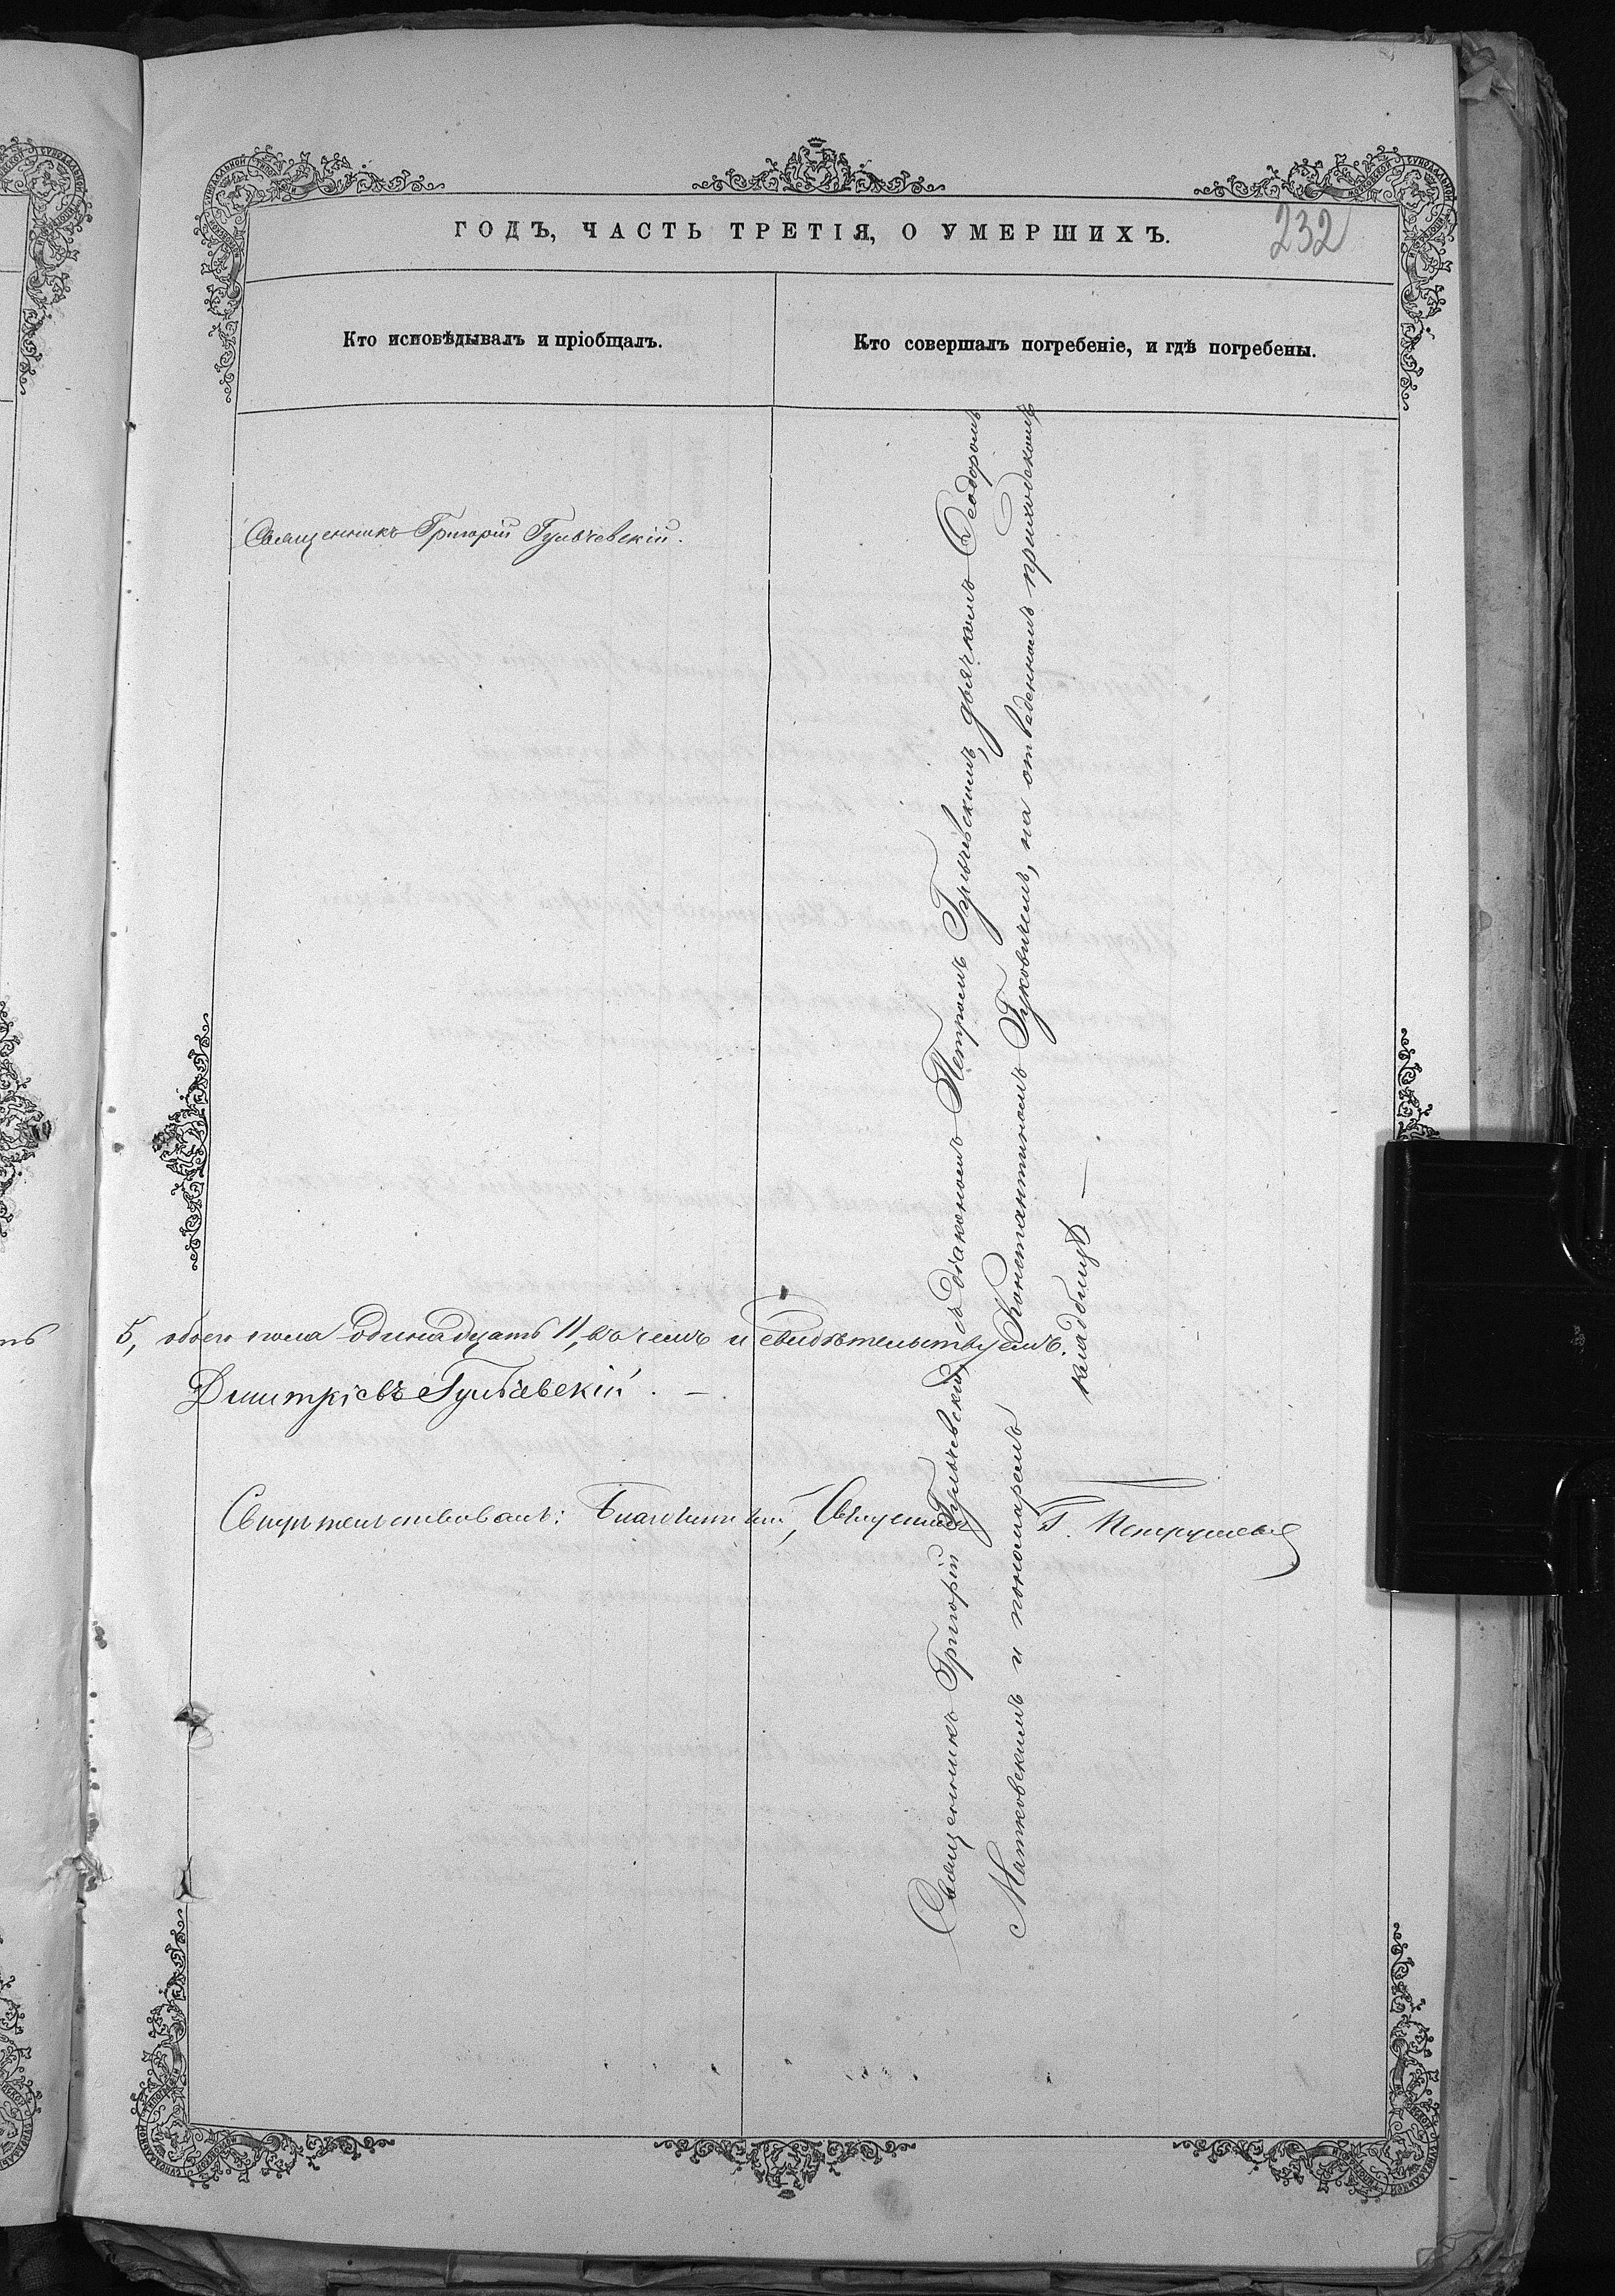 ГОДЪ, ЧАСТЬ ТРЕТІЯ, О УМЕРШИХЪ.
232
Кто исповѣдывалъ и пріобщалъ.
Кто совершалъ погребеніе, и гдѣ погребены.
Священникъ Григорій Гульчевскій.
Священникъ Григорій Гульчевскій, съ діакономъ Петромъ Гульчевскимъ, дьячкомъ Ѳеодоромъ
Матковскимъ и пономаремъ Константиномъ Буковичемъ, на отведенномъ приходскомъ
кладбищѣ —
5, обоего пола одинадцать 11, въ чемъ и свидѣтельствуемъ.
Димитріевъ Гульчевскій. —
Свидѣтельствовалъ: Благочинный, Священникъ